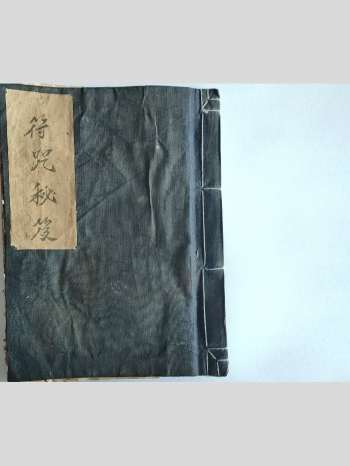 符咒秘笈